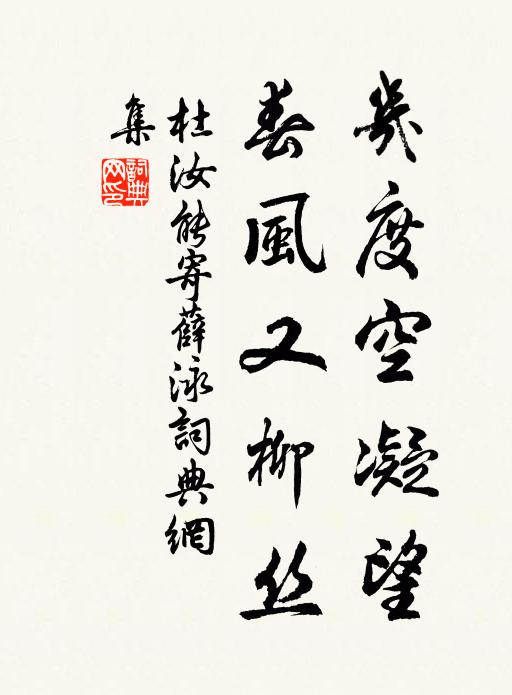 幾度空凝望
春風又柳丝
杜汝能寄薛泳詞典網
集
詞典網印